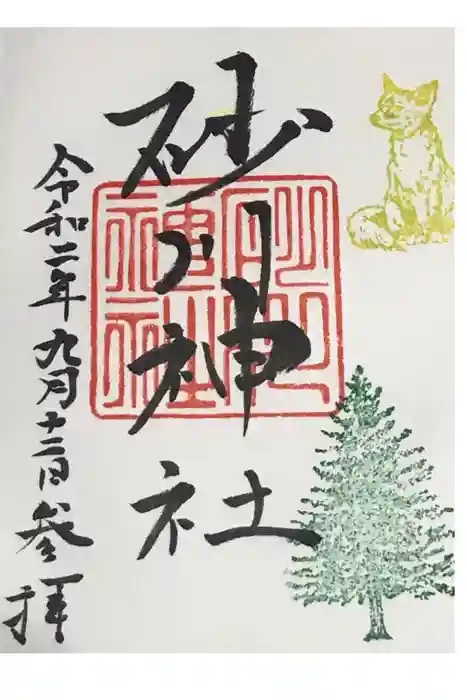 砂川神社
令和二年九月十二日参拝
砂川
神社